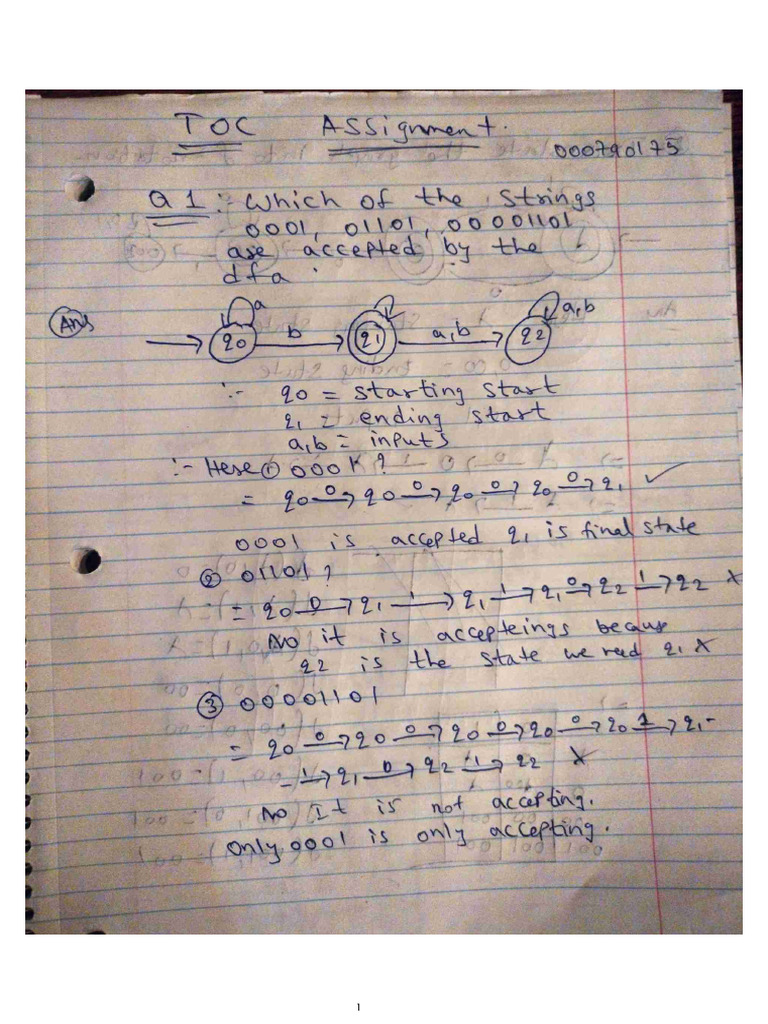 TOC ASSignment.
000790175
Q1: Which of the strings
0001, 01101, 00001101
are accepted by the
dfa.
Ans
a a,b
q0 b q1 a,b q2
:- q0 = starting start
q1 = ending start
a,b = inputs
:- Here ① 000?
= q0 0→ q0 0→ q0 0→ q0 0→ q1 ✓
0001 is accepted q1 is final state
② 01101?
= q0 0→ q1 1→ q1 1→ q1 0→ q2 1→ q2 X
No it is accepteings because
q2 is the state we need q1 X
③ 00001101
= q0 0→ q0 0→ q0 0→ q0 0→ q0 1→ q1 -
- 1→ q1 0→ q2 1→ q2 X
No It is not accepting.
Only 0001 is only accepting.
1